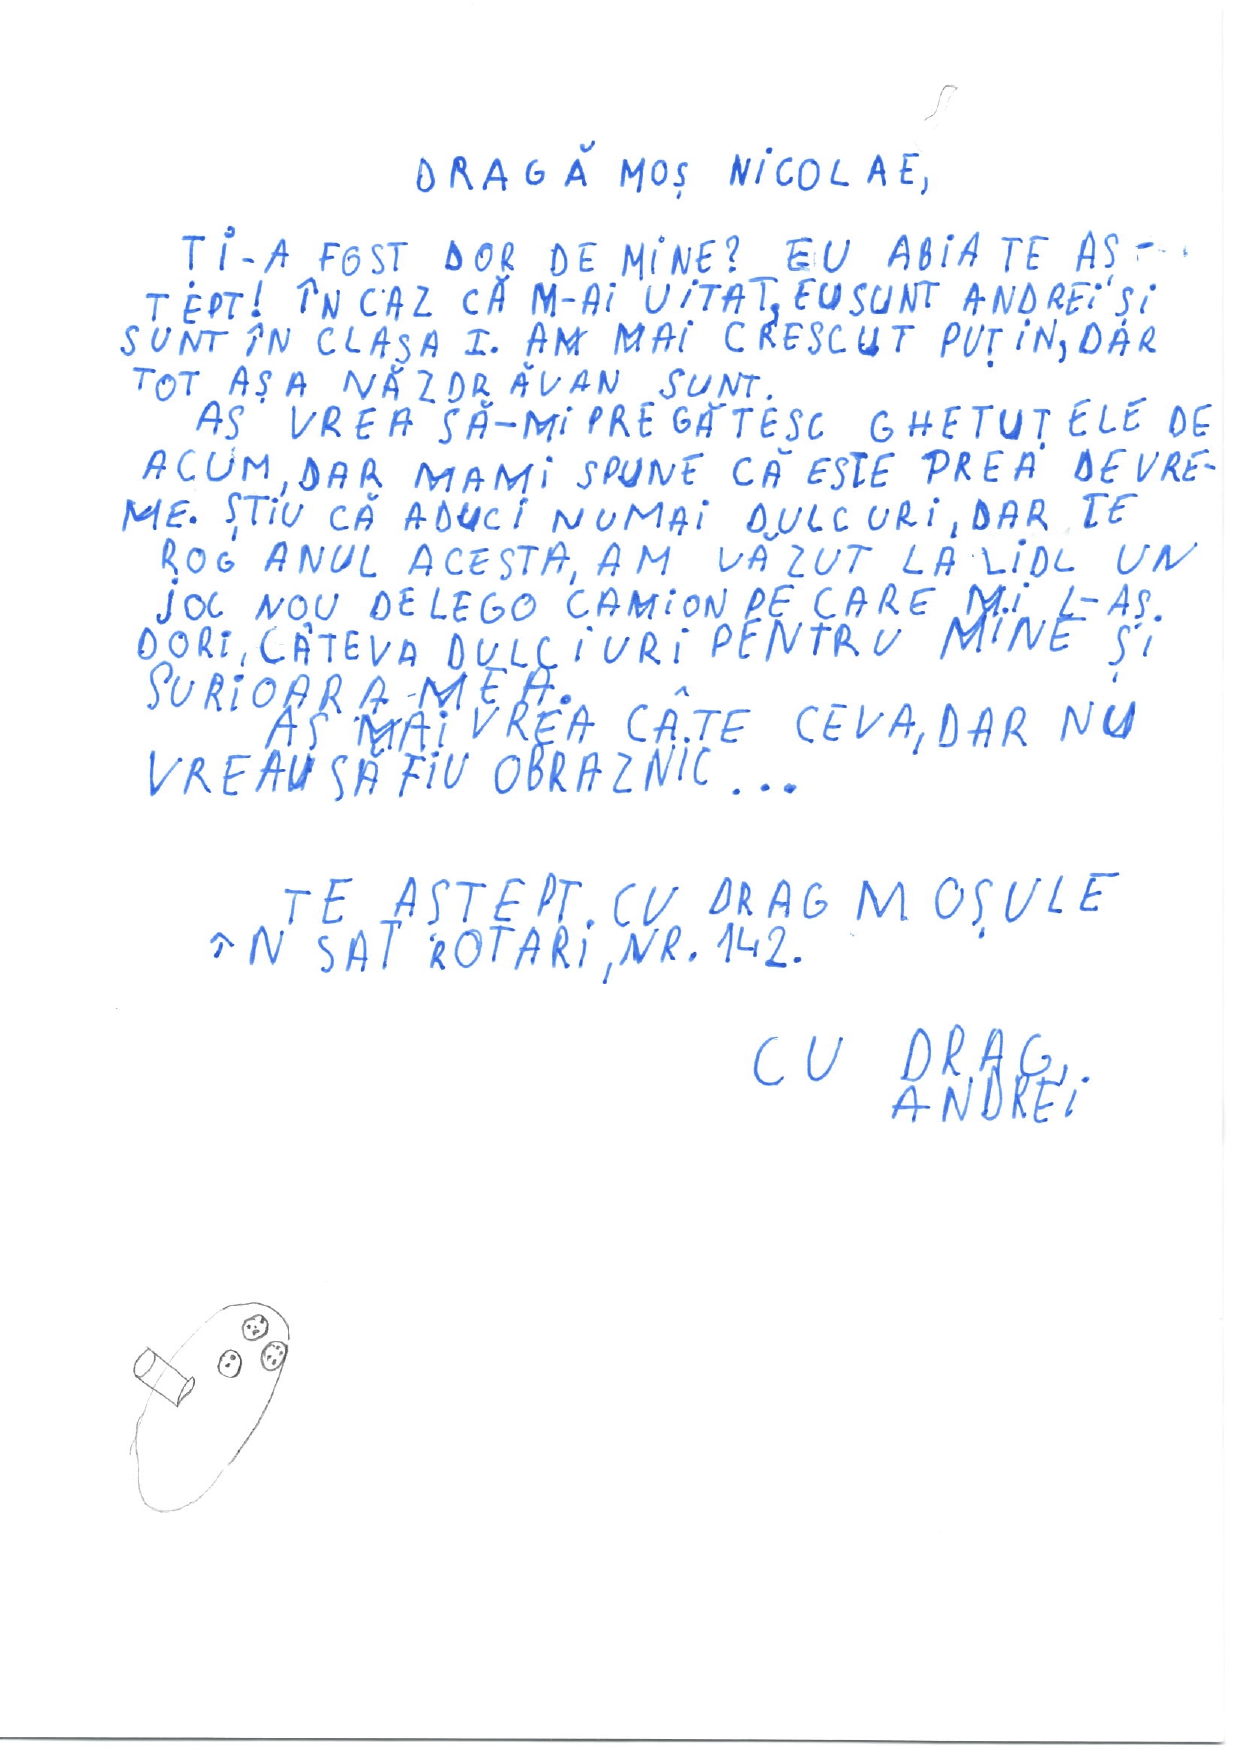 DRAGĂ MOȘ NiCOLAE,
Ți-A FOST DOR DE MiNE? EU ABiA TE AȘ-
TEPT! ÎN CAZ CĂ M-Ai UiTAT, EU SUNT ANDREi Și
SUNT ÎN CLASA I. AM MAi CRESCUT PUȚiN, DAR
TOT AȘA NĂZDRĂVAN SUNT.
AȘ VREA SĂ-Mi PREGĂTESC GHETUȚELE DE
ACUM, DAR MAMi SPUNE CĂ ESTE PREA DEVRE-
ME. ȘTiU CĂ ADUCI NUMAi DULCURi, DAR TE
ROG ANUL ACESTA, AM VĂZUT LA LiDL UN
JOC NOU DE LEGO CAMiON PE CARE Mi L-AȘ
DORI, CÂTEVA DULCiURi PENTRU MINE Și
SURiOARA MEA.
AȘ MAi VREA CÂTE CEVA, DAR NU
VREAU SĂ FiU OBRAZNIC...
TE AȘTEPT CU DRAG MOȘULE
ÎN SAT ROTARi, NR. 142.
CU DRAG,
ANDREi